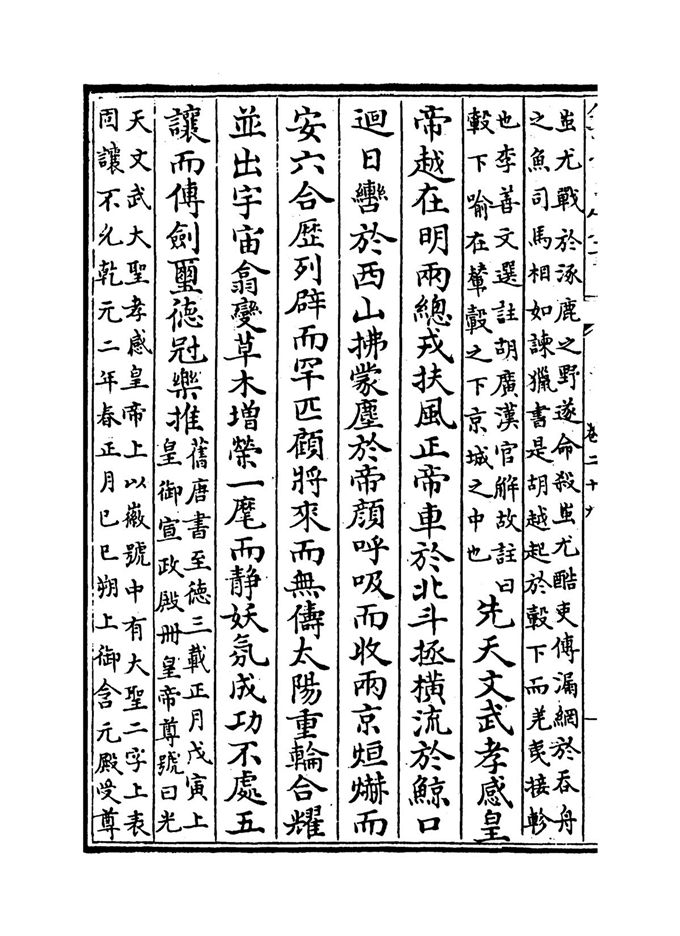 蚩尤戰於涿鹿之野遂命殺蚩尤酷吏傳漏網於吞舟
之魚司馬相如諫獵書是胡越起於轂下而羌夷接軫
也李善文選註胡廣漢官解故註曰
轂下喻在輦轂之下京城之中也
先天文武孝感皇
帝越在明兩總戎扶風正帝車於北斗拯橫流於鯨口
迴日轡於西山拂蒙塵於帝顔呼吸而收兩京烜爀而
安六合歴列辟而罕匹顧將來而無儔太陽重輪合耀
並出宇宙翕變草木増榮一麾而静妖氛成功不處五
讓而傳劍璽德冠樂推
舊唐書至德三載正月戊寅上
皇御宣政殿冊皇帝尊號曰光
天文武大聖孝感皇帝上以徽號中有大聖二字上表
固讓不允乾元二年春正月已巳朔上御含元殿受尊
卷二十九